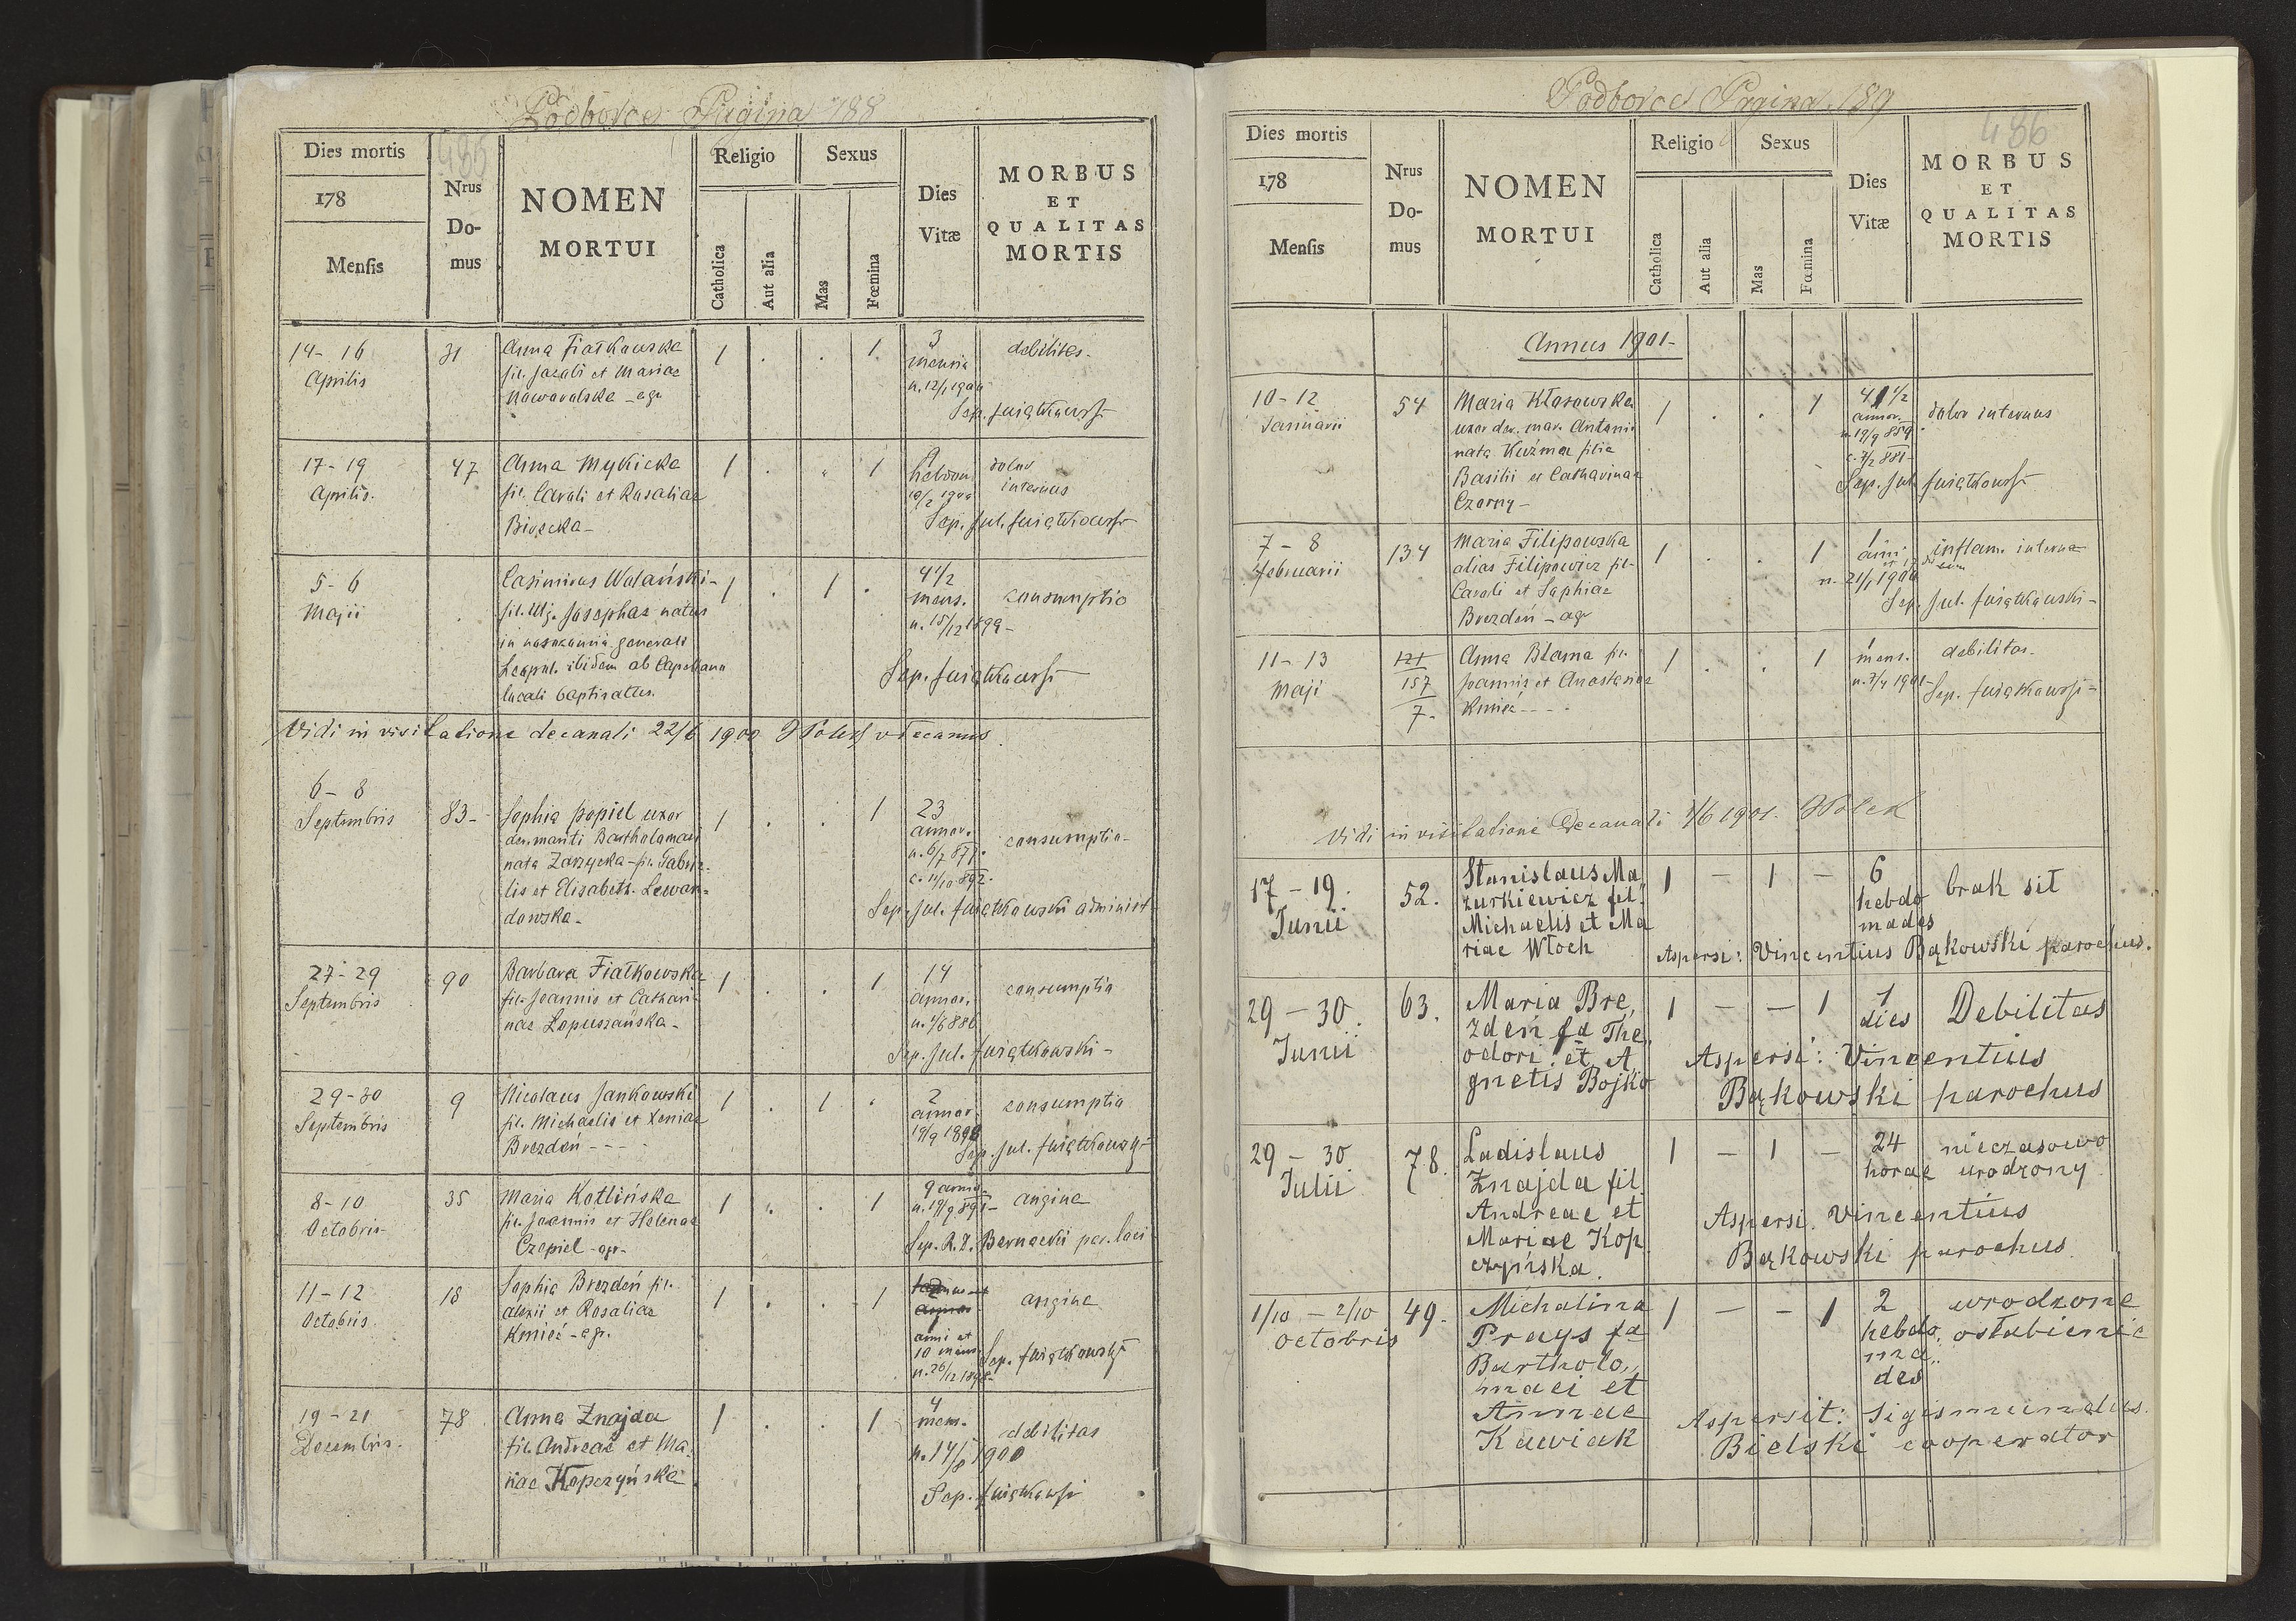 Podborce Pagina 188
485
Dies mortis
178
Mensis
Nrus
Do-
mus
NOMEN
MORTUI
Religio
Catholica
Aut alia
Sexus
Mas
Fœmina
Dies
Vitæ
MORBUS
ET
QUALITAS
MORTIS
14 - 16
Aprilis
31
Anna Fiałkowska
fil. Jacobi et Mariae
Nawaralska - agr
1 . . 1
3
mensia
n. 12/1 1900
debilitas -
Sep. Świątkowski
17 - 19
Aprilis.
47
Anna Mykicka
fil. Caroli et Rosaliae
Birecka -
1 . . 1
9
hebdom.
10/2 1900
dolor
internus
Sep. Jul. Świątkowski
5 - 6
Majii
Casimirus Wolański -
fil. illg. Josephae natus
in nosocomio generali
Leopol. ibidem ab Capellano
locali baptisatus.
1 . 1 .
4 1/2
mens.
n. 15/12 1899 -
consumptio
Sep. Świątkowski
Vidi in visitatione decanali 22/6 1900 vdecanus
6 - 8
Septembris
83 -
Sophia Popiel uxor
der. mariti Bartholomaei
nata Zarzycka - fil. Gabrie-
lis et Elisabeth. Lewan-
dowska -
1 . . 1
23
annor.
n. 6/7 877.
c. 11/10 892.
consumptio -
Sep. Jul. Świątkowski administ.
27 - 29
Septembris
90
Barbara Fiałkowska
fil. Joannis et Cathari-
nae Łopuszańska -
1 . . 1
14
annor.
n. 4/6 886
consumptio
Sep. Jul. Świątkowski -
29 - 30
Septembris
9
Nicolaus Jankowski
fil. Michaelis et Xeniae
Brezdeń - - -
1 . 1 .
2
annor.
19/9 1898
consumptio
Sep. Jul. Świątkowski -
8 - 10
Octobris -
35
Maria Kotlińska
fil. Joannis et Helenae
Czepiel - agr -
1 . . 1
9 annor.
n. 19/9 891 -
angina
Sep. R. D. Bernacki par. loci
11 - 12
Octobris
18
Sophia Brezdeń fil.
Alexii et Rosaliae
Kmieć - agr.
1 . . 1
anni et
10 mens.
n. 26/12 1898 -
angina
Sep. Świątkowski
19 - 21
Decembris -
78
Anna Znajda
fil. Andreae et Ma-
riae Kopczyńska
1 . . 1
4
mens.
n. 14/8 1900
debilitas
Sep. Świątkowski
Podborce Pagina 189
486
Dies mortis
178
Mensis
Nrus
Do-
mus
NOMEN
MORTUI
Religio
Catholica
Aut alia
Sexus
Mas
Fœmina
Dies
Vitæ
MORBUS
ET
QUALITAS
MORTIS
Annus 1901 -
10 - 12
Januarii
54
Maria Kłosowska
uxor der. mar. Antonii
nata Kuźma filia
Basilii et Catharinae
Czorny -
1 . . 1
41 1/2
annor.
n. 19/9 859
c. 7/2 881 -
dolor internus
Sep. Jul. Świątkowski
7 - 8
Februarii
134
Maria Filipowska
alias Filipowicz fil.
Caroli et Sophiae
Brezdeń - agr
1 . . 1
1
anni
n. 21/1 1900
inflam. interna
Sep. Jul. Świątkowski -
11 - 13
Maji
121
157
7.
Anna Blama fil.
Joannis et Anastasiae
Kmieć - - - -
1 . . 1
1
mens.
n. 7/4 1901 -
debilitas -
Sep. Świątkowski -
Vidi in visitatione Decanali 7/6 1901.
17 - 19.
Junii
52.
Stanislaus Ma
zurkiewicz fil.
Michaelis et Ma
riae Włoch
1 - 1 -
6
hebdo
mades
brak sił
Aspersi: Vincentius Bąkowski parochus.
29 - 30.
Junii
63.
Maria Bre,
zdeń fa The,
odori et A
gnetis Bojko
1 - - 1
1
dies
Debilitas
Aspersi: Vincentius
Bąkowski parochus
29 - 30
Julii
78.
Ladislaus
Znajda fil
Andreae et
Mariae Kop
czyńska.
1 - 1 -
24
horae
nieczasowo
urodzony
Aspersi. Vincentius
Bąkowski parochus.
1/10 - 2/10
octobris
49.
Michalina
Prays fa
Bartholo,,
maei et
Annae
Kawiak
1 - - 1
2
hebdo,
ma,,
des
urodzone
osłabienie
Aspersit: Sigismundus
Bielski cooperator